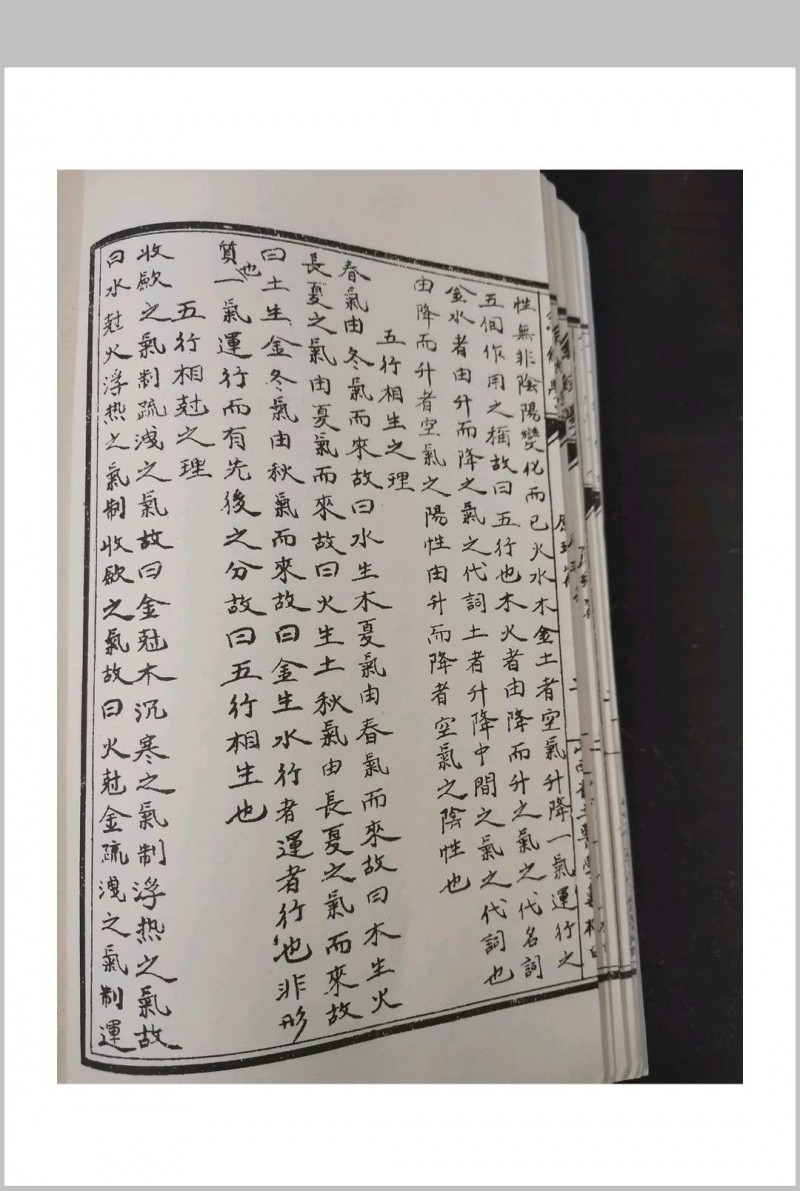 性無非陰陽變化而已火水木金土者空氣升降一氣運行之
五個作用之稱故曰五行也木火者由降而升之氣之代名詞
金水者由升而降之氣之代詞土者升降中間之氣之代詞也
由降而升者空氣之陽性由升而降者空氣之陰性也
五行相生之理
春氣由冬氣而來故曰水生木夏氣由春氣而來故曰木生火
長夏之氣由夏氣而來故曰火生土秋氣由長夏之氣而來故
曰土生金冬氣由秋氣而來故曰金生水行者運者行也非形
質也一氣運行而有先後之分故曰五行相生也
五行相尅之理
收歛之氣制疏洩之氣故曰金尅木沉寒之氣制浮热之氣故
曰水尅火浮热之氣制收歛之氣故曰火尅金疏洩之氣制運